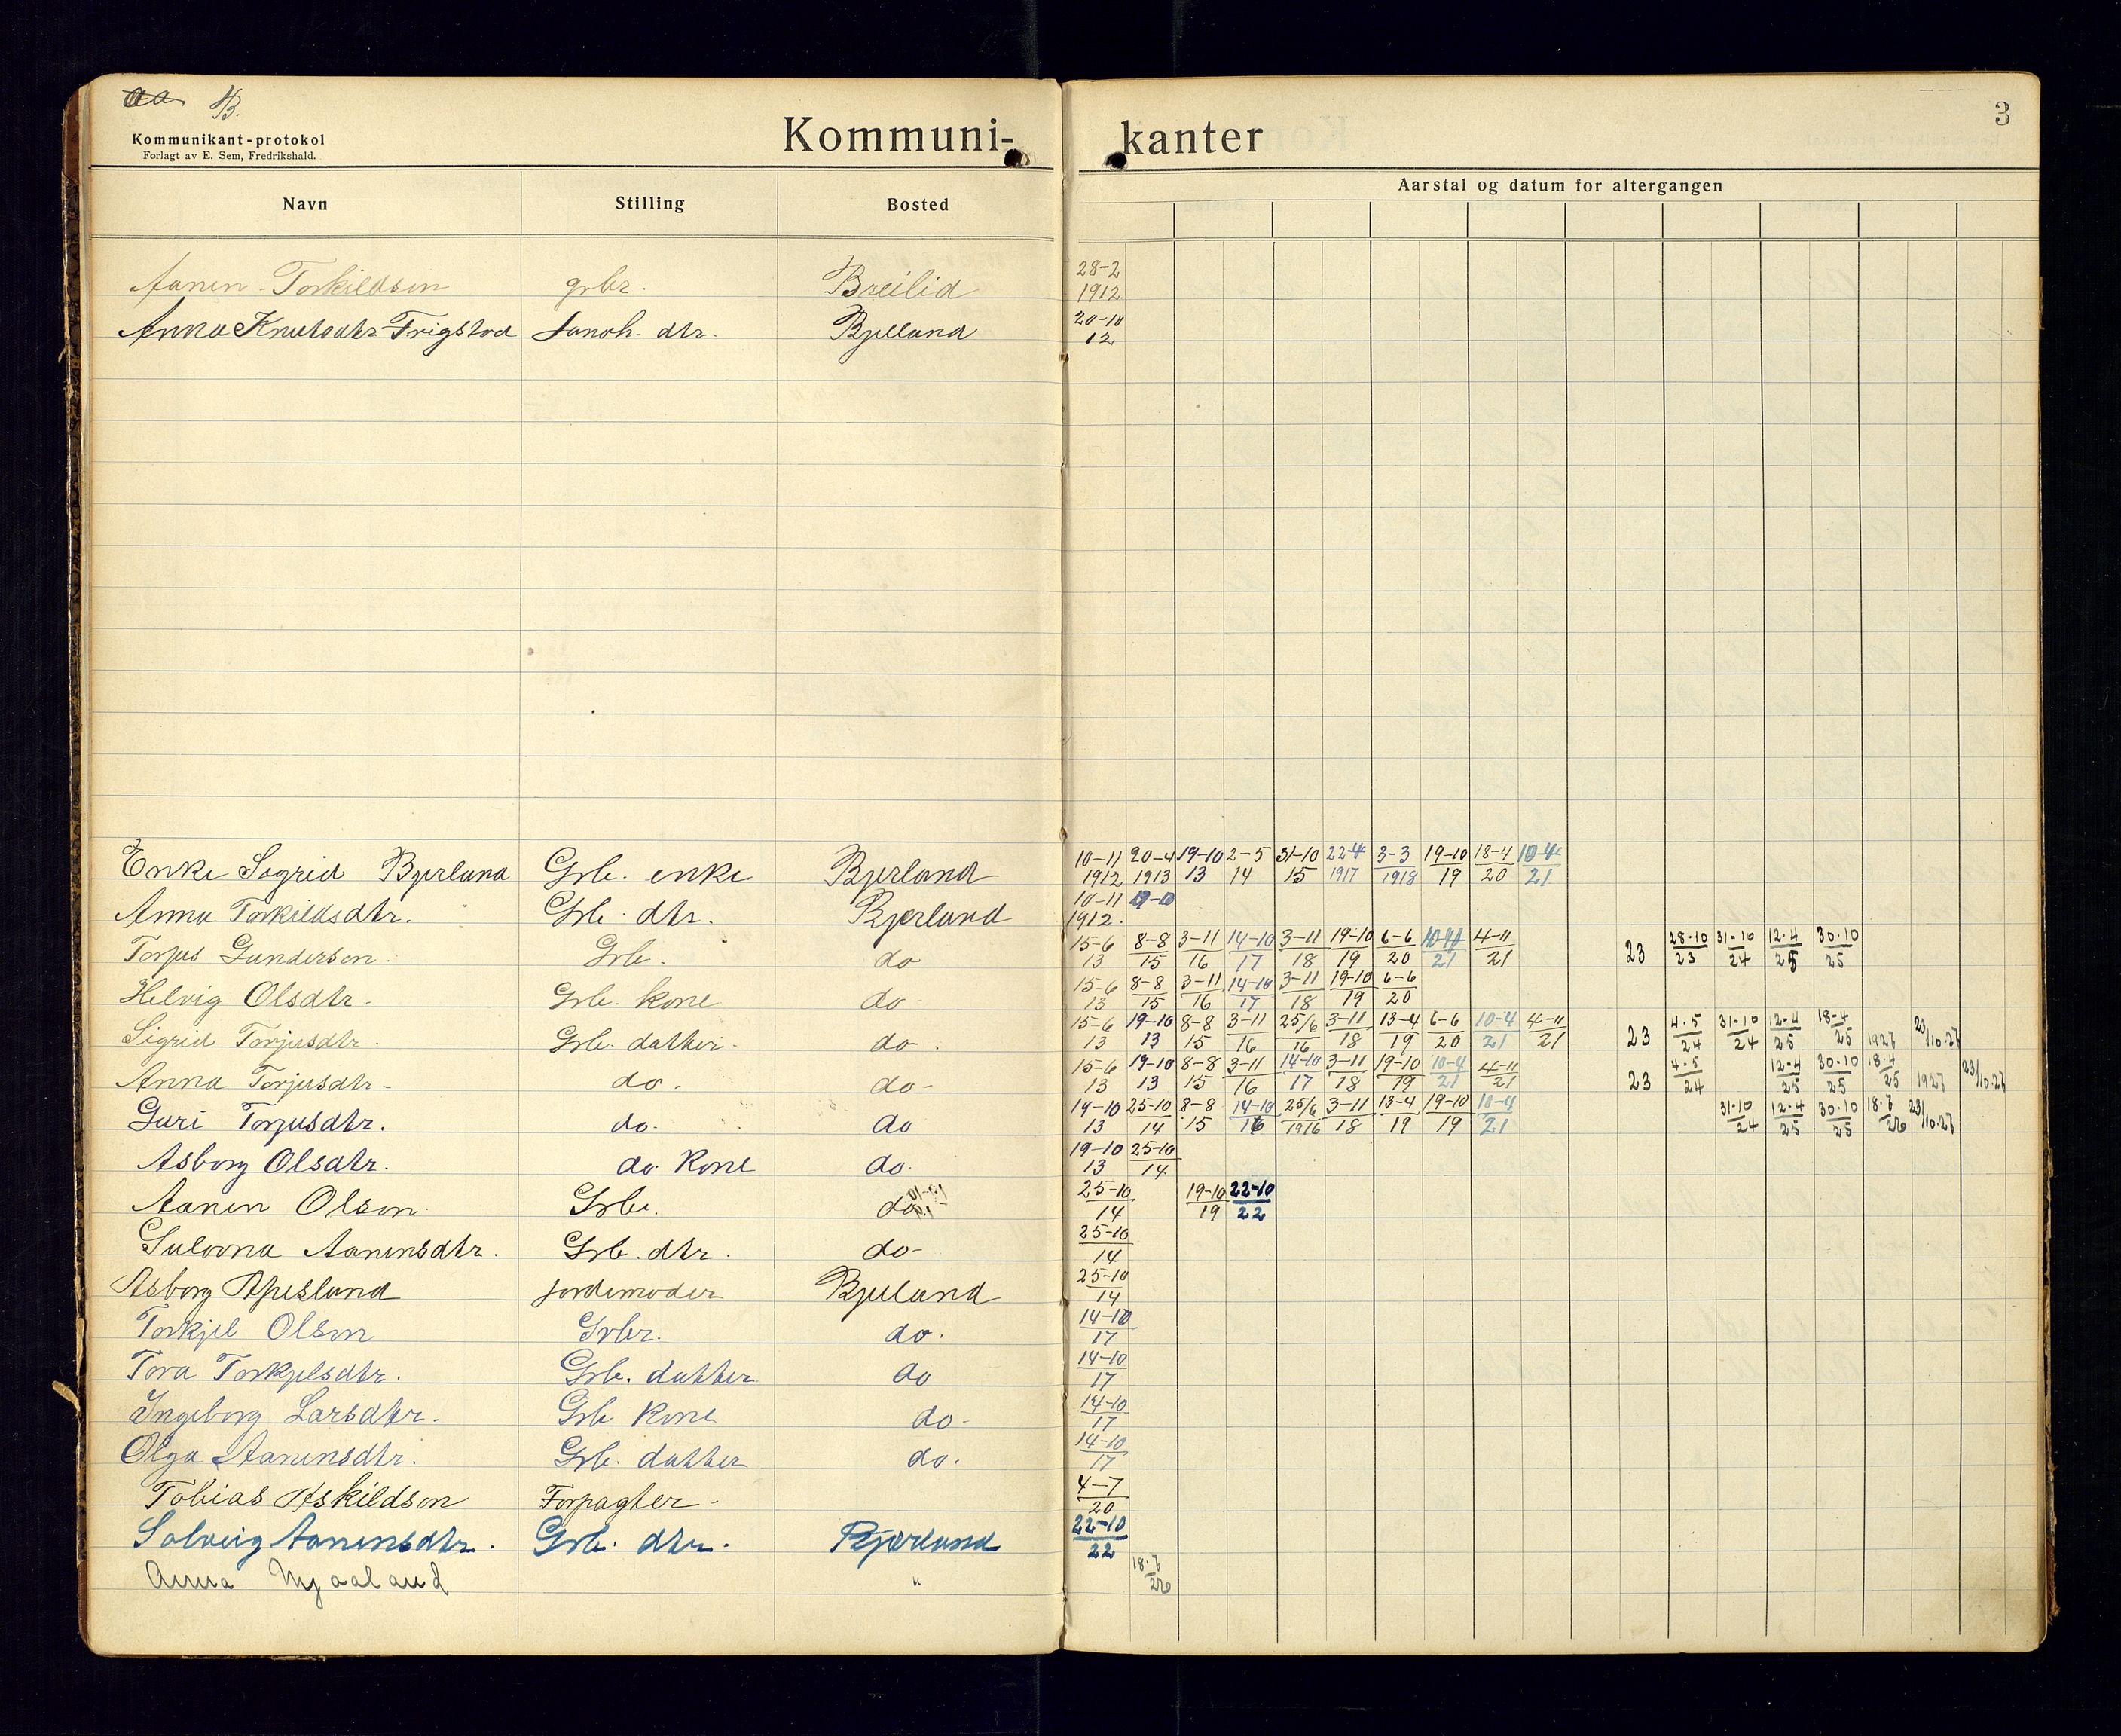 B.
3
Kommunikant-protokol
Forlagt av E. Sem, Fredrikshald.
Kommuni- kanter
Aarstal og datum for altergangen
Navn Stilling Bosted
Aanen Torkildsen grbr. Breilid 28-2 1912
Anna Knutsdtr Trigstad dtr. Bjelland 20-10 12
Enke Sigrid Bjerland Grb. enke Bjerland 10-11 1912 20-4 1913 19-10 13 2-5 14 31-10 15 22-4 1917 3-3 1918 19-10 19 18-4 20 10-4 21
Anna Torkildsdtr. Grb. dtr. Bjerland 10-11 1912.
Torjus Gunderson. Grb. do 15-6 13 8-8 15 3-11 16 14-10 17 3-11 18 19-10 19 6-6 20 10-4 21 4-11 21 23 28.10 23 31-10 24 12.4 25 30.10 25
Helvig Olsdtr. Grb. kone do 15-6 13 8-8 15 3-11 16 14-10 17 3-11 18 19-10 19 6-6 20
Sigrid Torjusdtr. Grb. datter. do. 15-6 13 19-10 13 8-8 15 3-11 16 25/6 16 3-11 18 13-4 19 6-6 20 10-4 21 4-11 21 23 4.5 24 31-10 24 12-4 25 18-4 25 1927 23/10.27
Anna Torjusdtr- do. do- 15-6 13 19-10 13 8-8 15 3-11 16 14-10 17 3-11 18 19-10 19 10-4 21 4-11 21 23 4.5 24 12.4 25 30.10 25 18.4 25 1927 23/10.27
Guri Torjusdtr. do. do 19-10 13 25-10 14 8-8 15 14-10 16 25/6 1916 3-11 18 13-4 19 19-10 19 10-4 21 31.10 24 12.4 25 30.10 25 18.7 26 23/10.27
Asborg Olsdtr. do. Kone do. 19-10 13 25-10 14
Aanen Olson. Grbr. do. 25-10 14 19-10 19 22-10 22
Aanensdtr. Grb. dtr. do- 25-10 14
Asborg jordemoder Bjelland 25-10 14
Torkjel Olson Grbr. do. 14-10 17
Tora Torkjelsdtr. Grb. datter do 14-10 17
Ingeborg Larsdtr. Grb. Kone do- 14-10 17
Olga Aanensdtr. Grb. datter do. 14-10 17
Tobias Askildson Forpagter - 4-7 20
Solveig Aanensdtr. Grb. dtr. Bjerland 22-10 22
Anna Mjaaland " 18.7 26